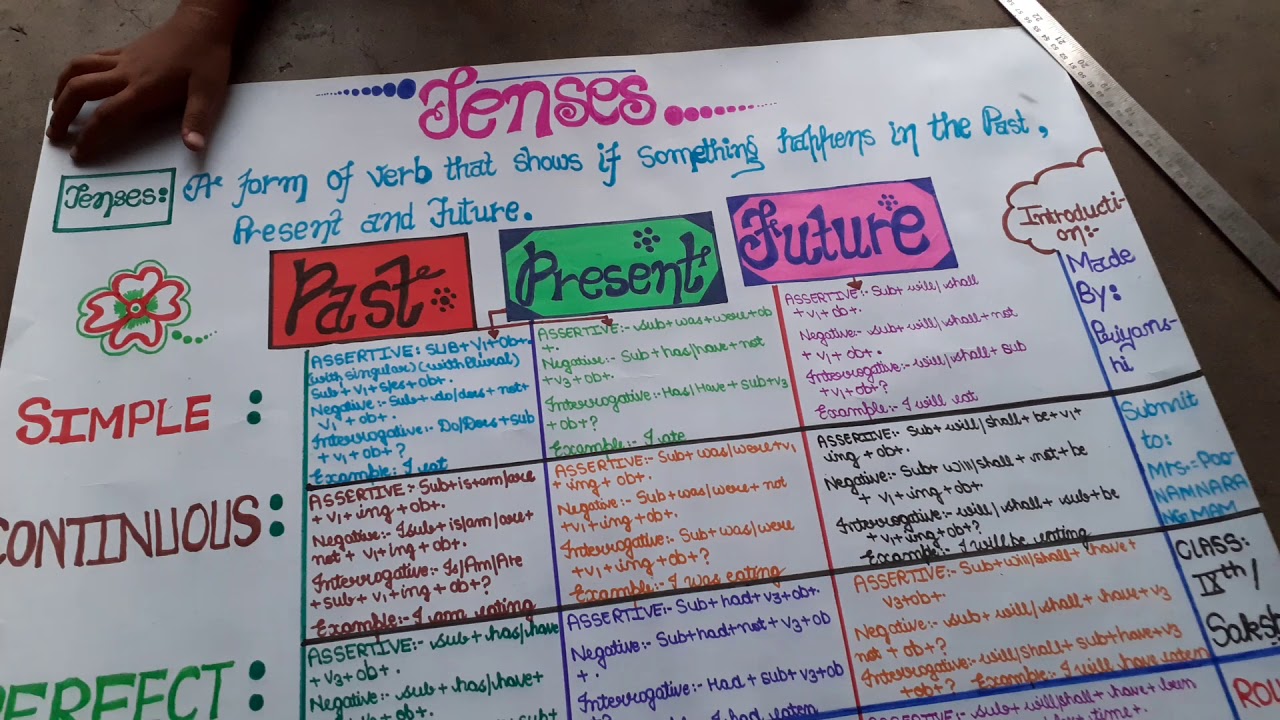 Tenses
Tenses: A form of verb that shows if something happens in the Past,
Present and Future.
Past
Present
Future
Introducti-
on:-
Made
By:
Priyans-
hi
Submit
to:
Mrs.=Poo-
NAMNARA
NG MAM
CLASS:
IXth/
SIMPLE :
ASSERTIVE: SUB+V1+Ob+.
(with singular) (with Plural)
Sub+V1+s/es+ob+.
Negative:- Sub+do/does+not+
V1+ob+.
Interrogative:- Do/Does+sub
+V1+ob+?
Example: I eat
ASSERTIVE:- sub+was+were+ob
+.
Negative:- Sub+has/have+not
+v3+ob+.
Interrogative:- Has/Have+sub+v3
+ob+?
Example:- I ate
ASSERTIVE:- Sub+will/shall
+v1+ob+.
Negative:- sub+will/shall+not
+v1+ob+.
Interrogative:- will/shall+sub
+v1+ob+?
Example:- I will eat
CONTINUOUS:
ASSERTIVE:- Sub+is+am/are
+v1+ing+ob+.
Negative:- sub+is/am/are+
not+v1+ing+ob+.
Interrogative:- Is/Am/Are
+sub+v1+ing+ob+?
Example:- I am eating
ASSERTIVE:- Sub+was/were+v1
+ing+ob+.
Negative:- Sub+was/were+not
+v1+ing+ob+.
Interrogative:- Sub+was/were
+v1+ing+ob+?
Example:- I was eating
ASSERTIVE:- Sub+will/shall+be+v1+
ing+ob+.
Negative:- Sub+will/shall+not+be
+v1+ing+ob+.
Interrogative:- will/shall+sub+be
+v1+ing+ob+?
Example:- I will be eating
PERFECT:
ASSERTIVE:- sub+has/have
+v3+ob+.
Negative:- sub+has/have+
ASSERTIVE:- Sub+had+v3+ob+.
Negative:- Sub+had+not+v3+ob
+.
Interrogative:- Had+sub+v3+ob
+?
Example:- I had eaten
ASSERTIVE:- Sub+will/shall+have+
v3+ob+.
Negative:- sub+will/shall+have+v3
not+ob+?
Interrogative:- will/shall+sub+have+v3
+ob+? Example:- I will have eaten
will/shall+have+been